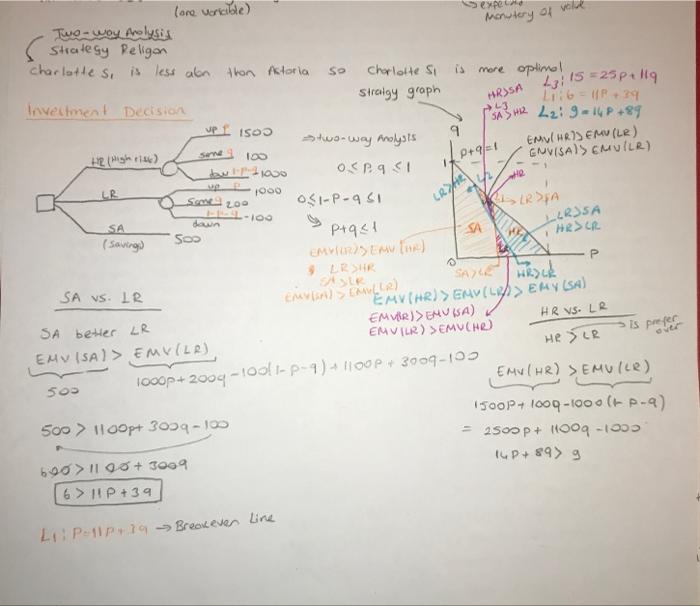 (one variable)
monetary of value
Two-way Analysis
Strategy Religon
Charlotte S1 is less abn than Astoria so Charlotte S1 is more optimal
stratgy graph
L3: 15 = 25p + 11q
L1: 6 = 11P + 3q
L2: 9 = 14P + 8q
HR>SA
L3
SA>HR
Investment Decision
up P 1500
same q 100
down 1-p-q -1000
HR (High risk)
LR
up P 1000
same q 200
1-p-q -100
down
SA 500
(Savings)
⇒ two-way Analysis
0≤P,q≤1
0≤1-P-q≤1
P+q≤1
EMV(LR)>EMV(HR)
LR>HR
SA>LR
EMV(SA)>EMV(LR)
q
1
P+q=1
EMV(HR)>EMV(LR)
EMV(SA)>EMV(LR)
LR>HR
L2
HR
L1
LR>SA
LR>SA
HR>LR
SA
HR
LR
0
P
SA>LR
HR>LR
EMV(HR)>EMV(LR)>EMV(SA)
EMV(LR)>EMV(SA)
EMV(LR)>EMV(HR)
SA vs. LR
SA better LR
EMV(SA) > EMV(LR)
500
1000p+200q-100(1-p-q)+1100P+300q-100
500 > 1100p+300q-100
600>1100+300q
6>11P+3q
L1: P=11P+3q → Breakeven Line
HR vs. LR
HR > LR
is prefer
over
EMV(HR) > EMV(LR)
1500P+100q-1000(1-P-q)
= 2500p+1100q-1000
14P+8q>9